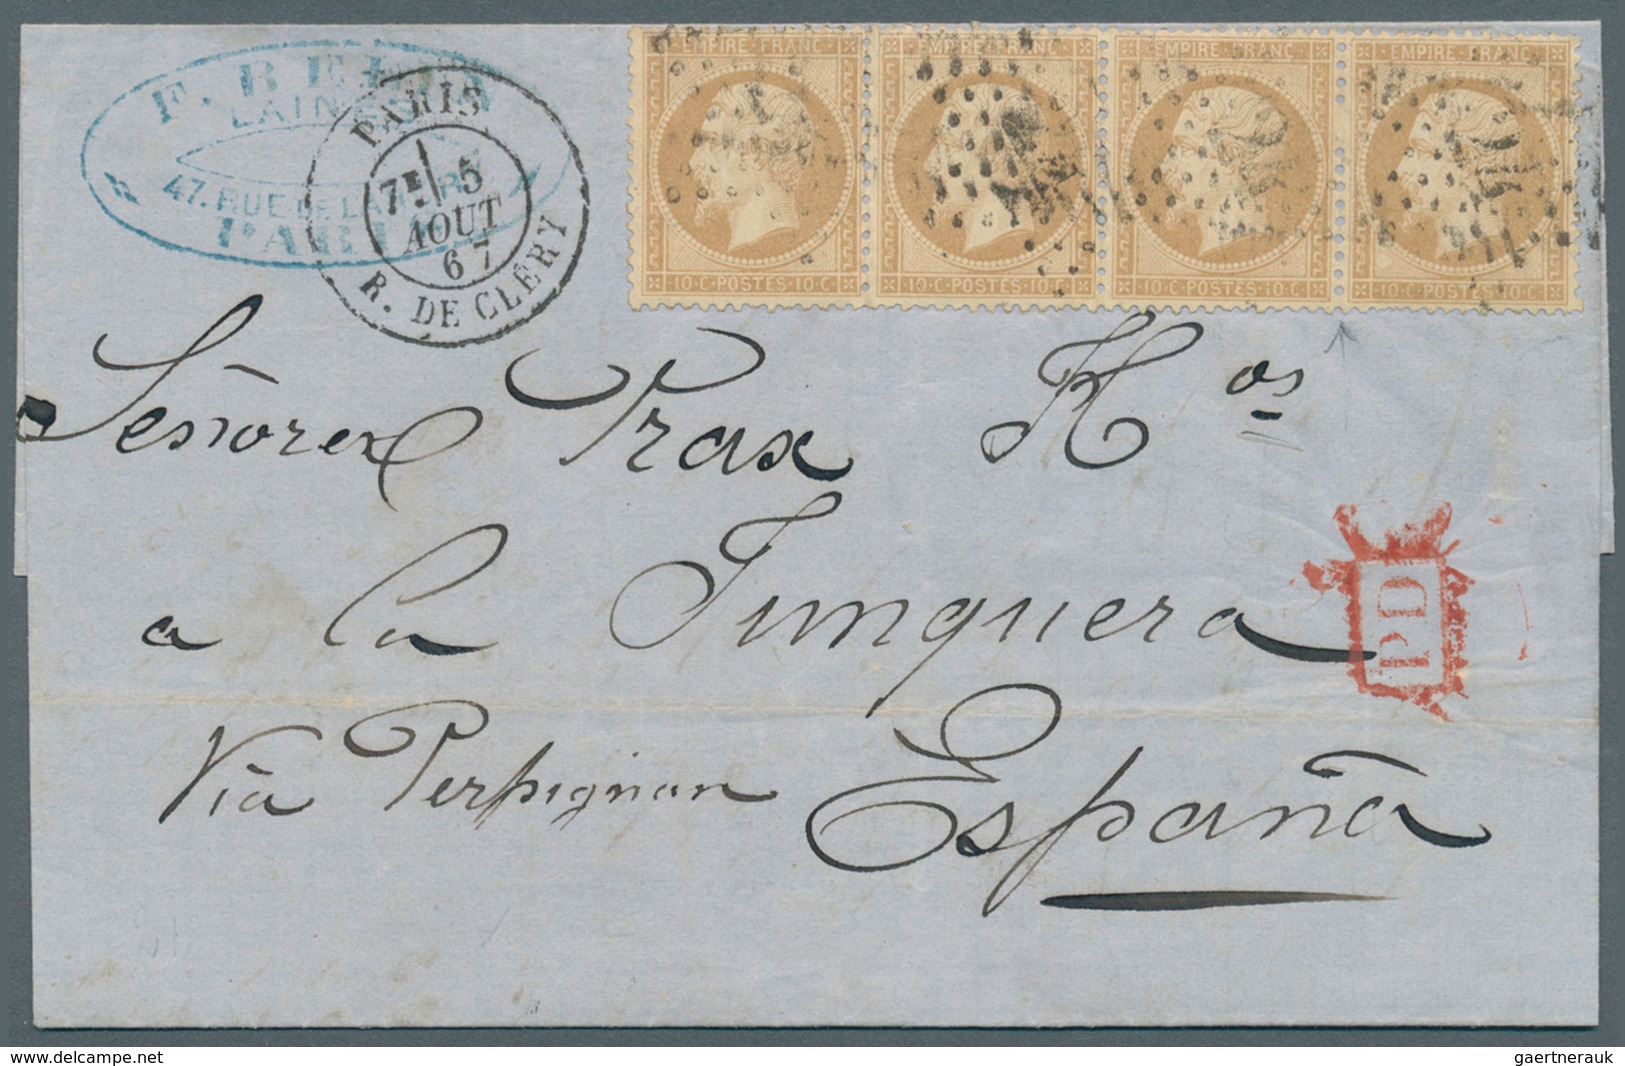 F. BE
LAINES
47. RUE DE LA
PARIS
PARIS
7E 5
AOUT
67
R. DE CLÉRY
EMPIRE FRANC EMPIRE FRANC EMPIRE FRANC EMPIRE FRANC
10 C POSTES 10 C 10 C POSTES 10 C 10 C POSTES 10 C 10 C POSTES 10 C
Señores Prax Hos
a la Junquera
PD
Via Perpignan España
www.delcampe.net
gaertnerauk